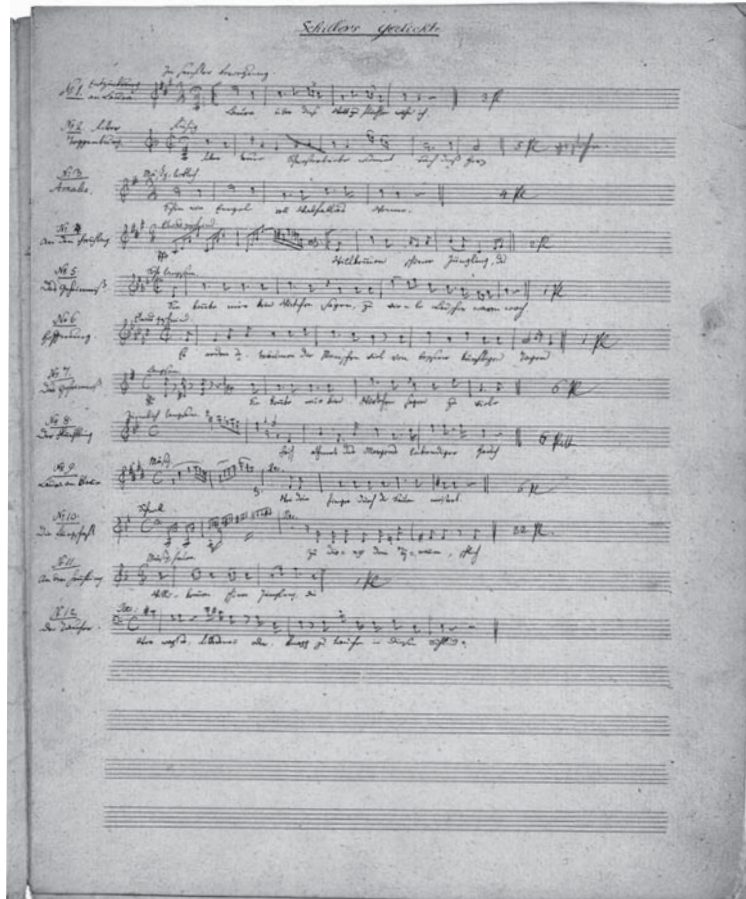 Schillers Gedichte
No 1. Entzückung
an Laura
Laura über diese Welt zu flüchten wähn ich
3
No 2. Ritter
Toggenburg
Ritter treue Schwesterliebe widmet euch dieß Herz
5
No 3.
Amalia.
Schön wie Engel voll Walhallas Wonne.
4
No 4
An den Frühling
Etwas geschwind
Willkommen schöner Jüngling, du
2
No 5
Das Geheimniß
Sehr langsam.
Sie konnte mir kein Wörtchen sagen, zu viele Lauscher waren wach
1
No 6
Hoffnung.
Etwas geschwind
Es reden u. träumen die Menschen viel von bessern künftigen Tagen
1
No 7.
Das Geheimniß
Langsam
Sie konnte mir kein Wörtchen sagen zu viele
6
No 8.
Der Flüchtling
Ziemlich langsam
Frisch athmet des Morgens lebendiger Hauch
No 9.
Laura am Clavier
Mäßig
Wenn dein Finger durch die Saiten meistert
6
No 10.
Die Bürgschaft
Schnell
Zu Dionys dem Tyrannen, schlich
22
No 11.
An den Frühling
Willkommen schöner Jüngling, du
1
No 12
Der Taucher.
Wer wagt es, Rittersmann oder Knapp zu tauchen in diesen Schlund